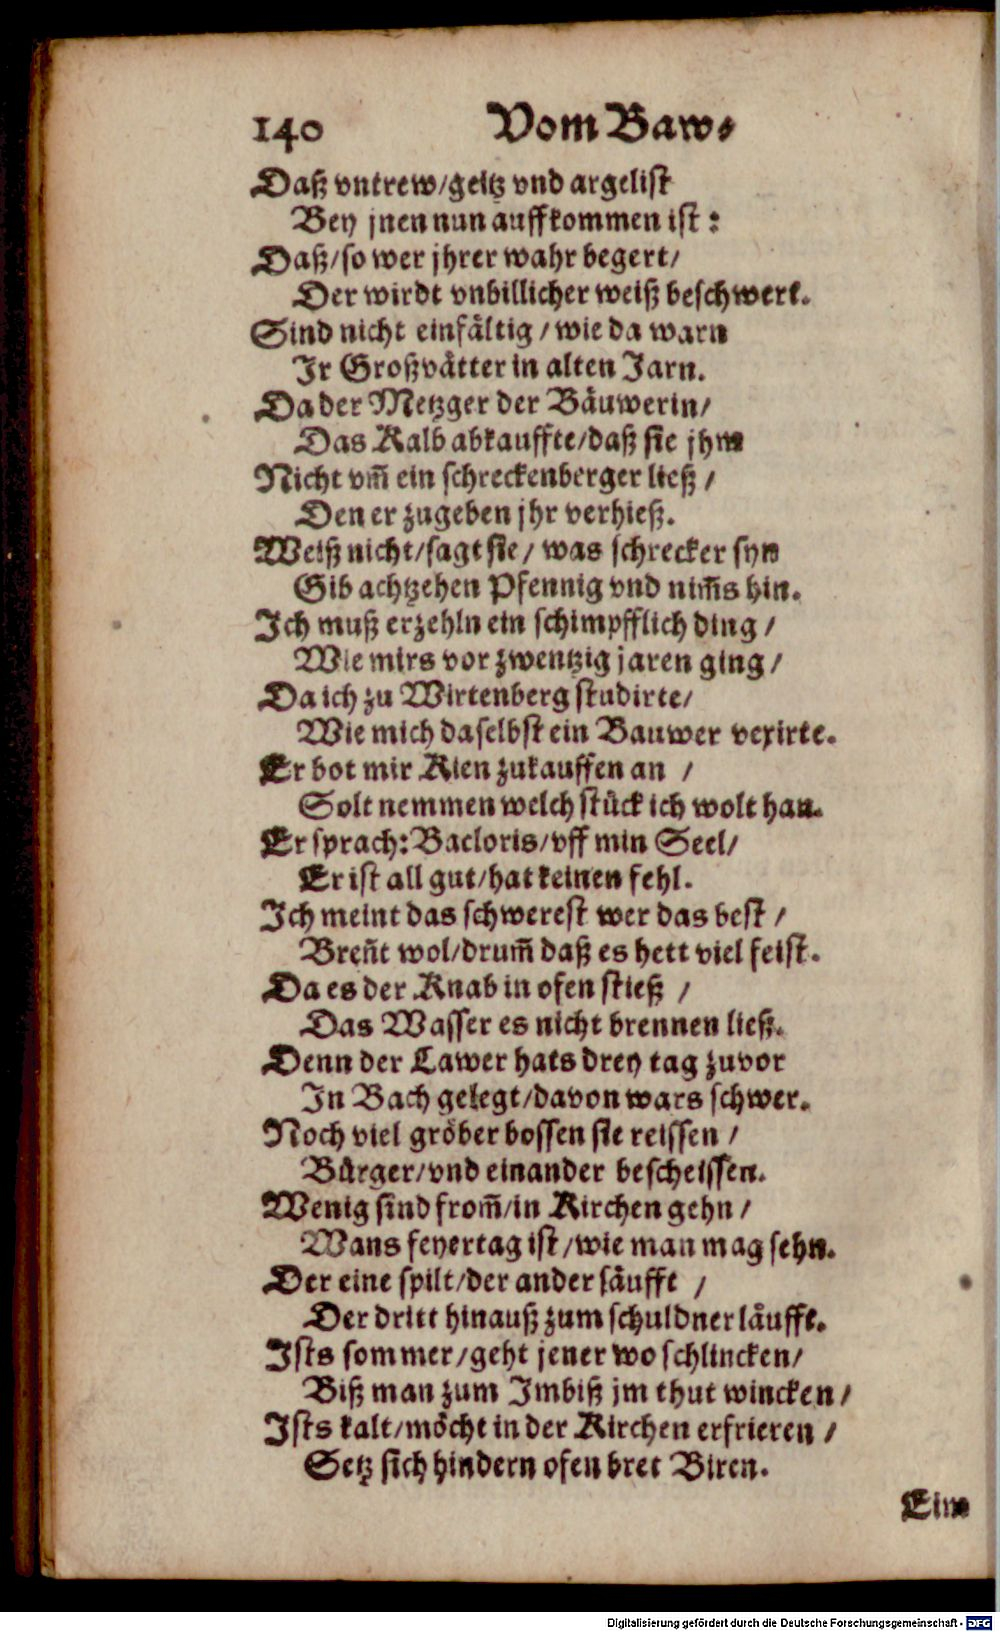 140 Vom Baw⸗
Daß vntrew/geitz vnd argelist
Bey jnen nun auffkommen ist:
Daß/so wer jhrer wahr begert/
Der wirdt vnbillicher weiß beschwert.
Sind nicht einfältig/wie da warn
Jr Großvätter in alten Jarn.
Da der Metzger der Bäuwerin/
Das Kalb abkauffte/daß sie jhm
Nicht vm̃ ein schreckenberger ließ/
Den er zugeben jhr verhieß.
Weiß nicht/sagt sie/was schrecker syn
Gib achtzehen Pfennig vnd nim̃s hin.
Ich muß erzehln ein schimpfflich ding/
Wie mirs vor zwentzig jaren ging/
Da ich zu Wirtenberg studirte/
Wie mich daselbst ein Bauwer vexirte.
Er bot mir Kien zukauffen an /
Solt nemmen welch stück ich wolt han.
Er sprach: Bacloris/vff min Seel/
Er ist all gut/hat keinen fehl.
Ich meint das schwerest wer das best/
Breñt wol/drum̃ daß es hett viel feist.
Da es der Knab in ofen stieß /
Das Wasser es nicht brennen ließ.
Denn der Lawer hats drey tag zuvor
In Bach gelegt/davon wars schwer.
Noch viel gröber bossen sie reissen/
Bürger/vnd einander bescheissen.
Wenig sind from̃/in Kirchen gehn/
Wans feyertag ist/wie man mag sehn.
Der eine spilt/der ander säufft /
Der dritt hinauß zum schuldner läufft.
Ists sommer/geht jener wo schlincken/
Biß man zum Imbiß jm thut wincken/
Ists kalt/möcht in der Kirchen erfrieren/
Setz sich hindern ofen bret Biren.
Eine
Digitalisierung gefördert durch die Deutsche Forschungsgemeinschaft - DFG